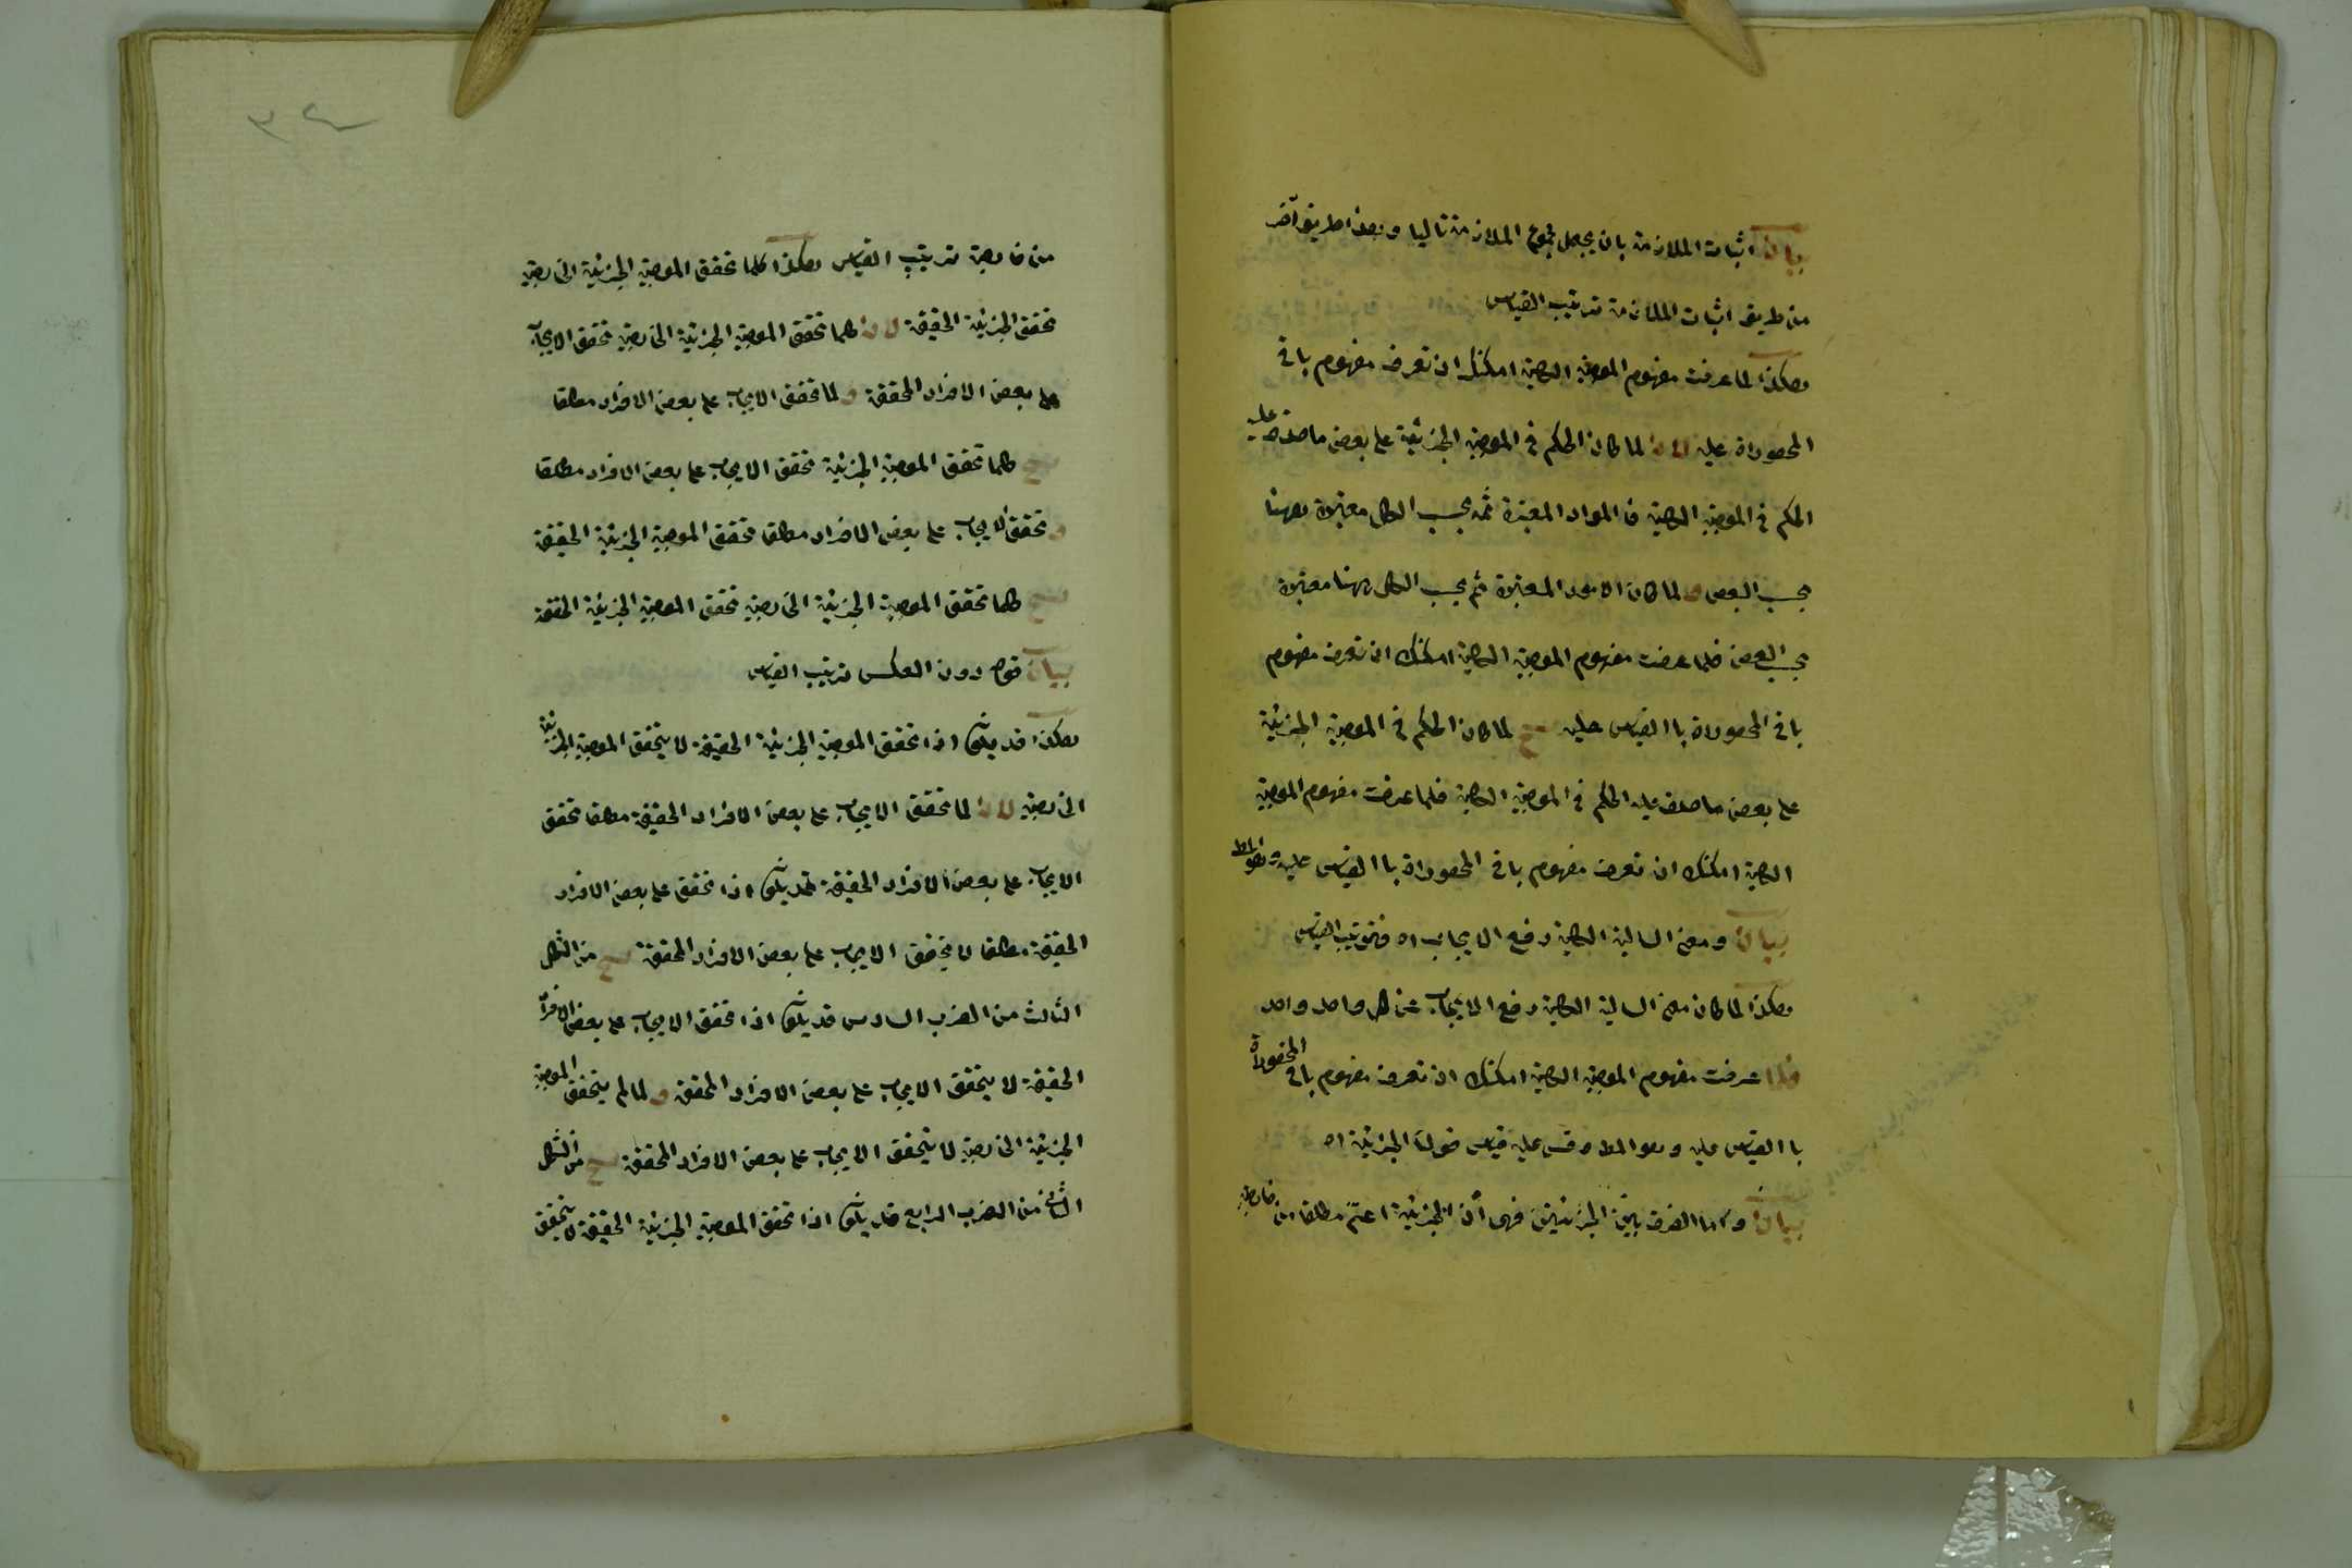 بيان اثبات الملازمة بان يجعل مجموع الملازمة تاليا وهذا طريق آخر
من طريق اثبات الملازمة ترتيب القياس
هكذا لما عرفت مفهوم الموجبة الكلية امكنك ان تعرف مفهوم باقى
المحصوراة عليه لان لما كان الحكم فى الموجبة الجزئية على بعض ما صدق عليه
الحكم فى الموجبة الكلية فا المواد المعتبرة ثمه بحسب الكل معتبرة ههنا
بحسب البعض و لما كان الامور المعتبرة ثم بحسب الكل ههنا معتبرة
بحسب البعض فلما عرفت مفهوم الموجبة الكلية امكنك ان تعرف مفهوم
باقى المحصوراة باالقياس عليه ينتج لما كان الحكم فى الموجبة الجزئية
على بعض ما صدق عليه الحكم فى الموجبة الكلية فلما عرفت مفهوم الموجبة
الكلية امكنك ان تعرف مفهوم باقى المحصوراة باالقياس عليه وهو المط
بيان ومعنى السالبة الكلية رفع الايجاب اه فترتيب القياس
هكذا لما كان معنى السالبة الكلية رفع الايجاب عن كل واحد واحد
فاذا عرفت مفهوم الموجبة الكلية امكنك ان تعرف مفهوم باقى المحصوراة
باالقياس عليه وهو المط وقس عليه قياس قولنا الجزئية اه
بيان واما الفرق بين الجزئيتين فهى ان الجزئية اعم مطلقا من خارجية
من خارجية ترتيب القياس هكذا كلما تحقق الموجبة الجزئية الخارجية
تحقق الجزئية الحقيقة لان كلما تحقق الموجبة الجزئية الخارجية تحقق الايجاب
على بعض الافراد المحققة و لما تحقق الايجاب على بعض الافراد مطلقا
ينتج كلما تحقق الموجبة الجزئية تحقق الايجاب على بعض الافراد مطلقا
و تحقق الايجاب على بعض الافراد مطلقا تحقق الموجبة الجزئية الحقيقة
ينتج كلما تحقق الموجبة الجزئية الخارجية تحقق الموجبة الجزئية الحققة
بيان قوله دون العكس ترتيب القياس
هكذا قد يكون اذا تحقق الموجبة الجزئية الحقيقة لا يتحقق الموجبة الجزئية
الخارجية لان لما تحقق الايجاب على بعض الافراد الحقيقة مطلقا تحقق
الايجاب على بعض الافراد الحقيقة قد يكون اذا تحقق على بعض الافراد
الحقيقة مطلقا لا يتحقق الايجاب على بعض الافراد المحققة ينتج من الشكل
الثالث من الضرب السادس قد يكون اذا تحقق الايجاب على بعض الافراد
الحقيقة لا يتحقق الايجاب على بعض الافراد المحققة و لما لم يتحقق الموجبة
الجزئية الخارجية لا يتحقق الايجاب على بعض الافراد المحققة ينتج من الشكل
الثانى من الضرب الرابع قد يكون اذا تحقق الموجبة الجزئية الحقيقة لا يتحقق